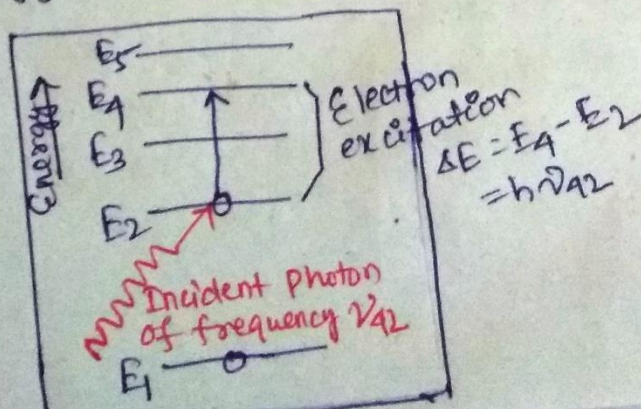 E5
E4
E3
E2
E1
Electron
excitation
ΔE = E4 - E2
= hν42
Incident photon
of frequency ν42